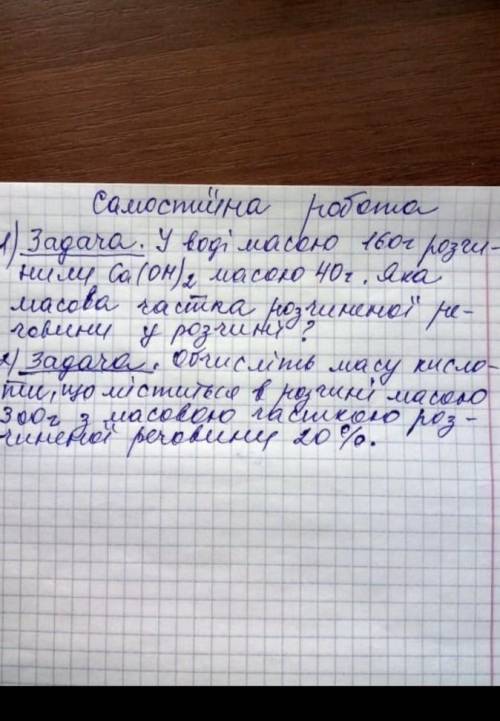 Самостійна робота
1) Задача. У воді масою 160г розчи-
нили Ca(OH)2 масою 40г. Яка
масова частка розчиненої ре-
човини у розчині?
2) Задача. Обчисліть масу кисло-
ти, що міститься в розчині масою
300г з масовою часткою роз-
чиненої речовини 20%.